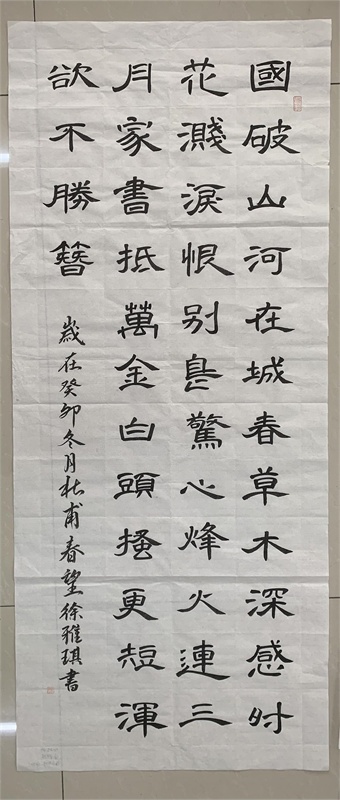 國破山河在城春草木深感时
花濺淚恨别鳥驚心烽火連三
月家書抵萬金白頭搔更短渾
欲不勝簪
歲在癸卯冬月杜甫春望徐雅琪書